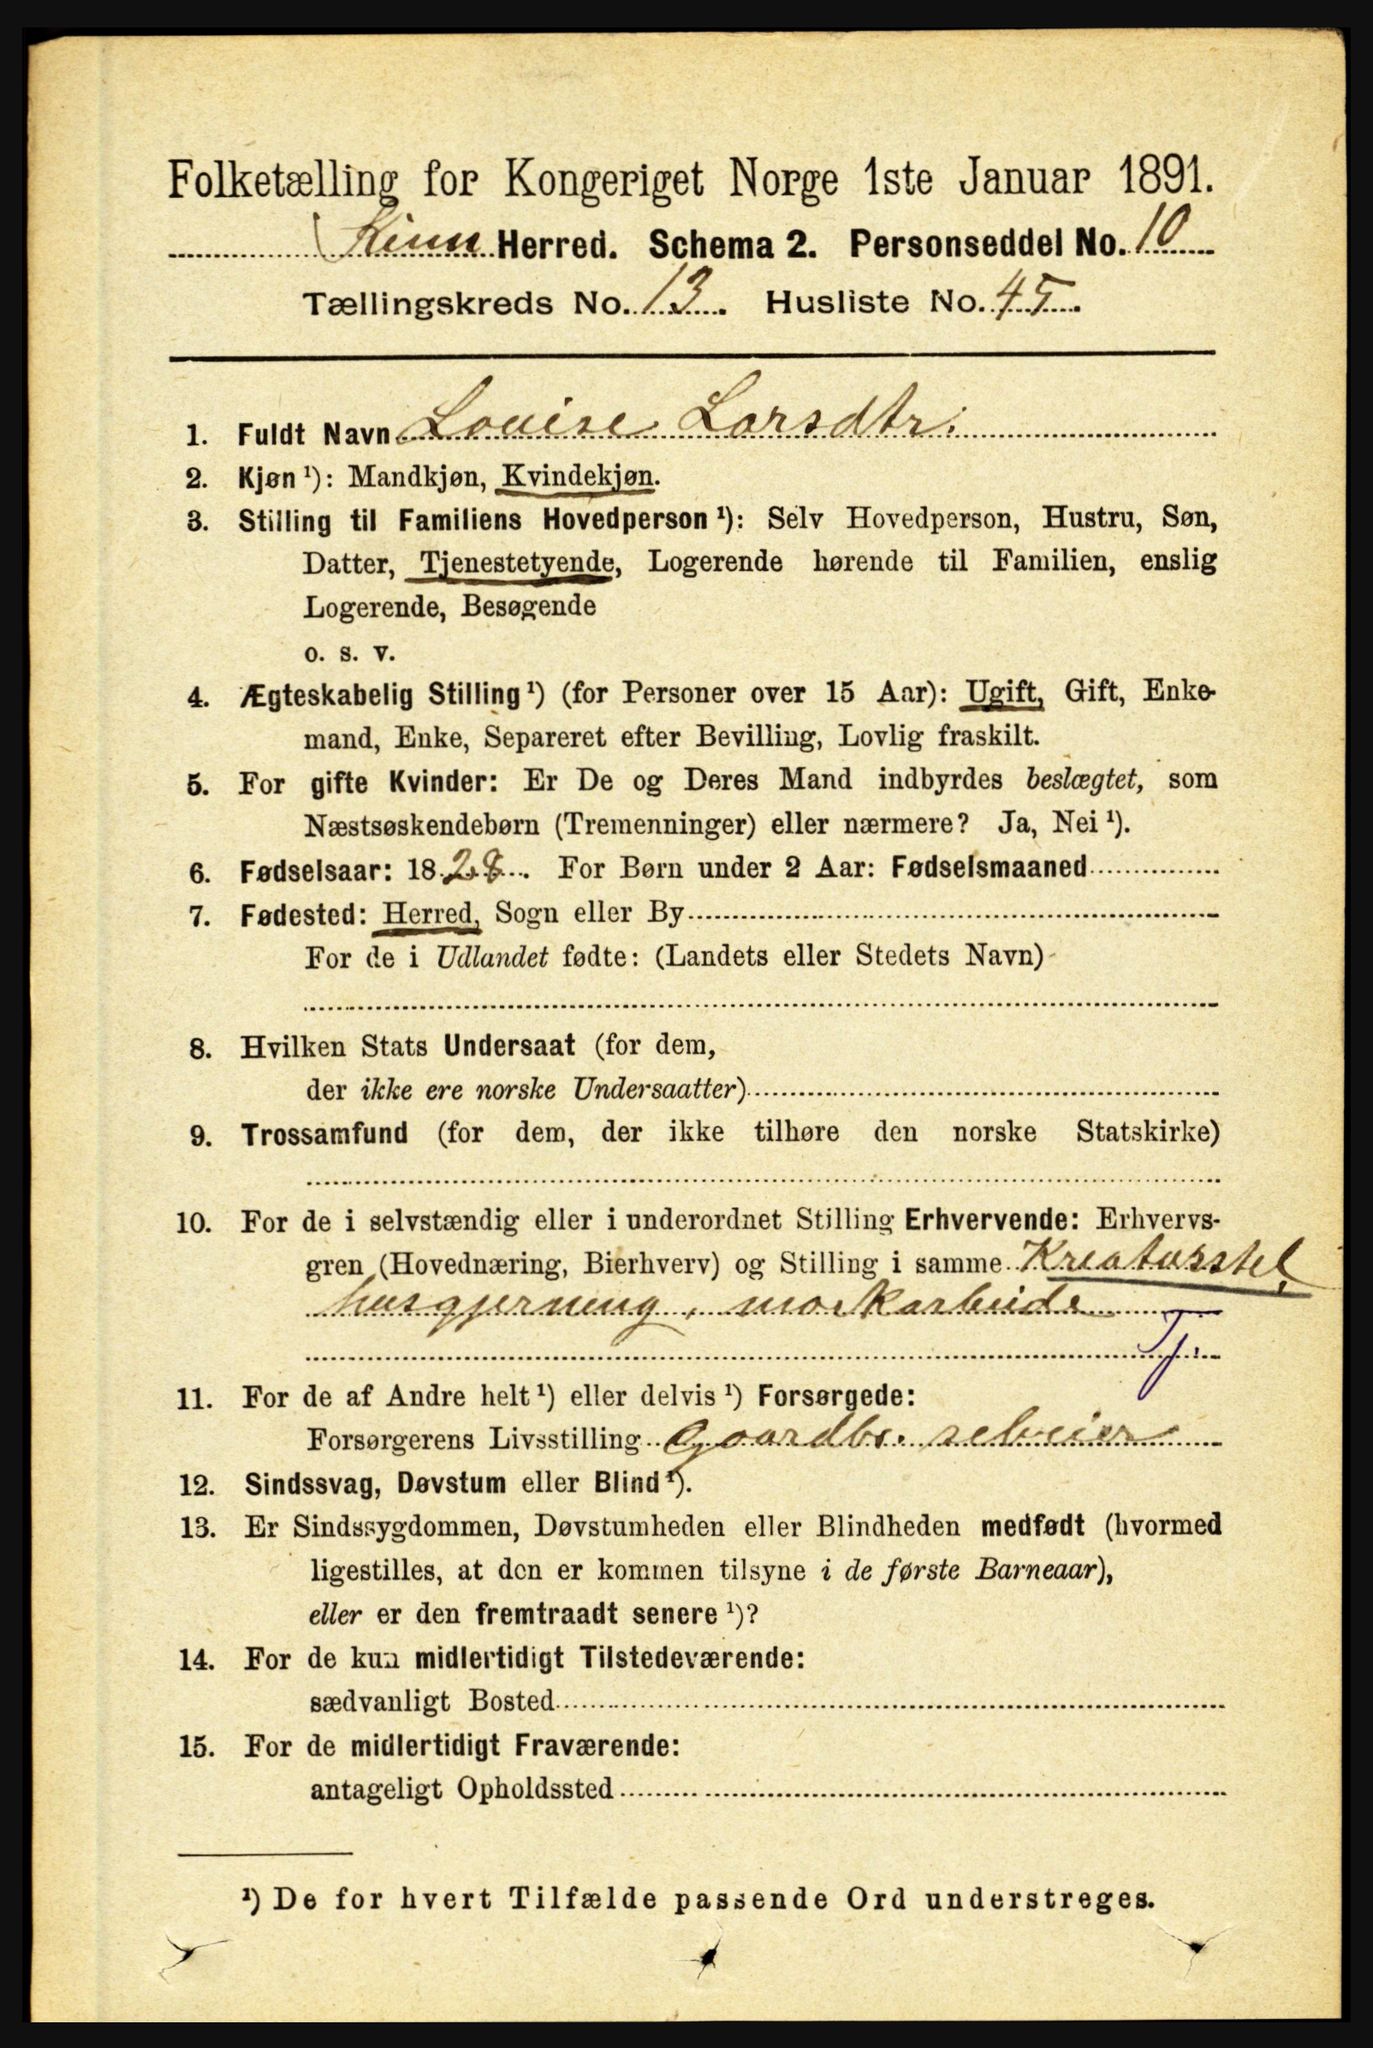 Folketælling for Kongeriget Norge 1ste Januar 1891.
Kinn Herred. Schema 2. Personseddel No. 10
Tællingskreds No. 13. Husliste No. 45.
1. Fuldt Navn Louise Larsdtr.
2. Kjøn ¹): Mandkjøn, Kvindekjøn.
3. Stilling til Familiens Hovedperson ¹): Selv Hovedperson, Hustru, Søn,
Datter, Tjenestetyende, Logerende hørende til Familien, enslig
Logerende, Besøgende
o. s. v.
4. Ægteskabelig Stilling ¹) (for Personer over 15 Aar): Ugift, Gift, Enke-
mand, Enke, Separeret efter Bevilling, Lovlig fraskilt.
5. For gifte Kvinder: Er De og Deres Mand indbyrdes beslægtet, som
Næstsøskendebørn (Tremenninger) eller nærmere? Ja, Nei ¹).
6. Fødselsaar: 1828. For Børn under 2 Aar: Fødselsmaaned
7. Fødested: Herred, Sogn eller By
For de i Udlandet fødte: (Landets eller Stedets Navn)
8. Hvilken Stats Undersaat (for dem,
der ikke ere norske Undersaatter)
9. Trossamfund (for dem, der ikke tilhøre den norske Statskirke)
10. For de i selvstændig eller i underordnet Stilling Erhvervende: Erhvervs-
gren (Hovednæring, Bierhverv) og Stilling i samme Kreaturstel,
husgjerning, markarbeide
Tj.
11. For de af Andre helt ¹) eller delvis ¹) Forsørgede:
Forsørgerens Livsstilling Gaardbr. selveier
12. Sindssvag, Døvstum eller Blind ¹).
13. Er Sindssygdommen, Døvstumheden eller Blindheden medfødt (hvormed
ligestilles, at den er kommen tilsyne i de første Barneaar),
eller er den fremtraadt senere ¹)?
14. For de kun midlertidigt Tilstedeværende:
sædvanligt Bosted
15. For de midlertidigt Fraværende:
antageligt Opholdssted
¹) De for hvert Tilfælde passende Ord understreges.